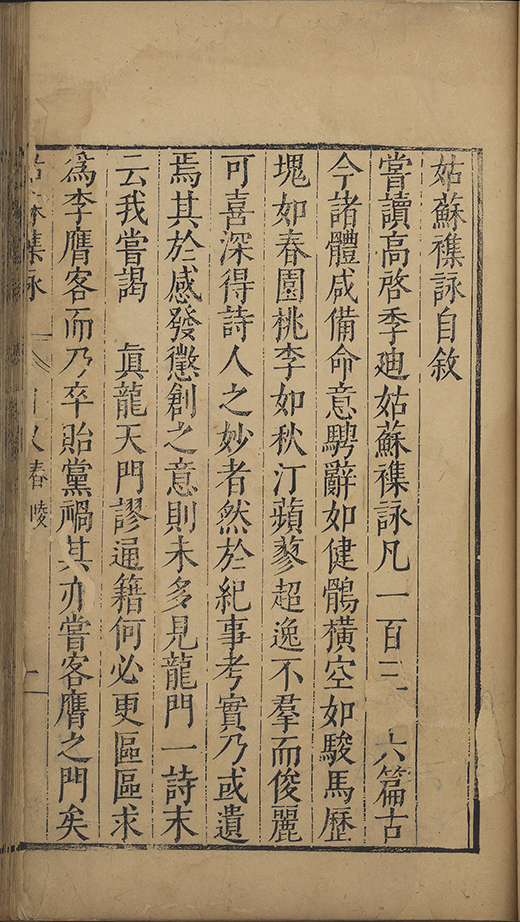 姑蘇襍詠自敘
嘗讀高啓季迪姑蘇襍詠凡一百三 六篇古
今諸體咸備命意騁辭如健鶻橫空如駿馬歷
塊如春園桃李如秋汀蘋蓼超逸不羣而俊麗
可喜深得詩人之妙者然於紀事考實乃或遺
焉其於感發懲創之意則未多見龍門一詩末
云我嘗謁 眞龍天門謬通籍何必更區區求
為李膺客而乃卒貽黨禍其亦嘗客膺之門矣
集詠
春陵
一